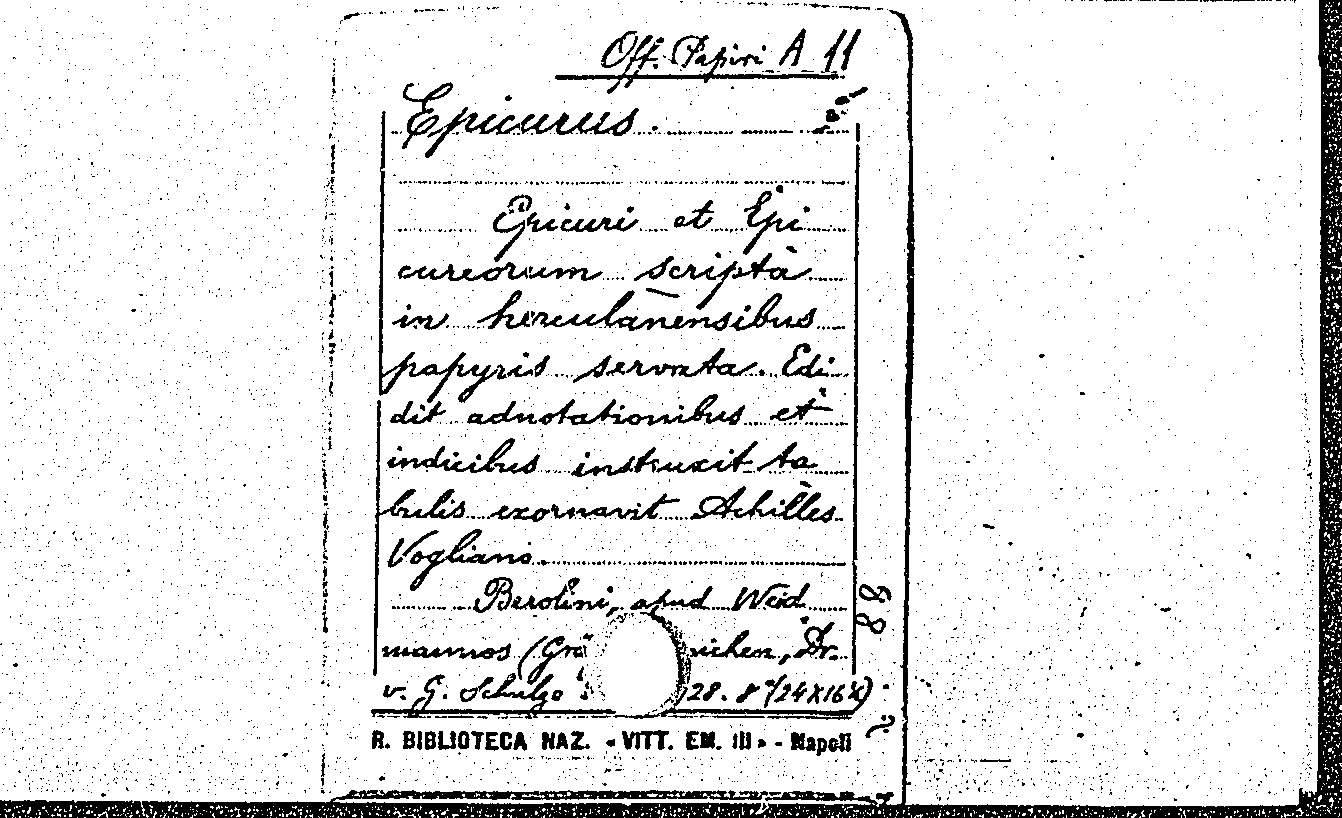 Off. Papiri A 11
Epicurus.
Epicuri et Epi
cureorum scripta
in herculanensibus
papyris servata. Edi
dit adnotationibus et
indicibus instruxit ta
bulis exornavit Achilles
Vogliano.
Berolini, apud Weid
mannos (Grä nichen, Dr.
v. G. Schulze 28. 8° (24x16½)
88
R. BIBLIOTECA NAZ. « VITT. EM. III » - Napoli